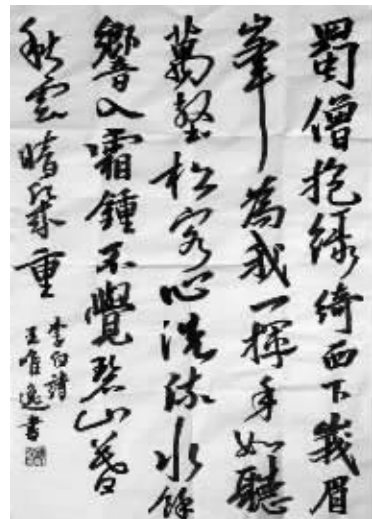 蜀僧抱綠綺西下峩眉
峯為我一揮手如聽
萬壑松客心洗流水餘
響入霜鍾不覺碧山暮
秋雲暗幾重
李白詩
王唯逸書